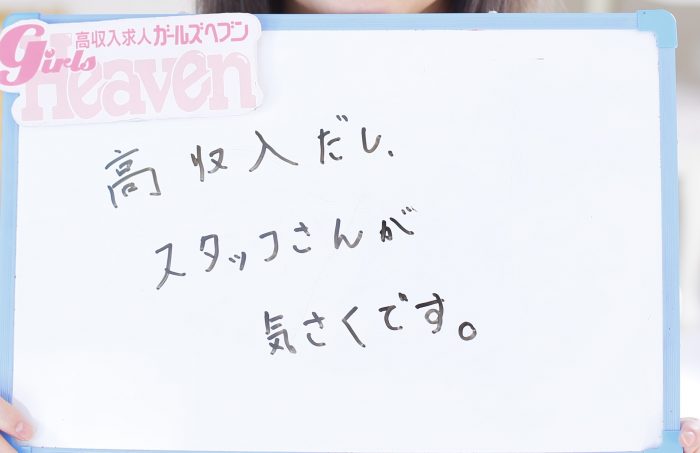 高収入求人ガールズヘブン
Girls
Heaven
高収入だし、
スタッフさんが
気さくです。